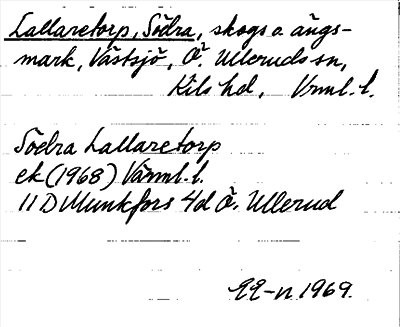 Lallaretorp, Södra, skogs o ängs-
mark, Västsjö, Ö. Ulleruds sn,
Kils hd, Vrml. l.
Södra Lallaretorp
ek (1968) Värml. l.
11 D Munkfors 4d Ö. Ullerud
1969.